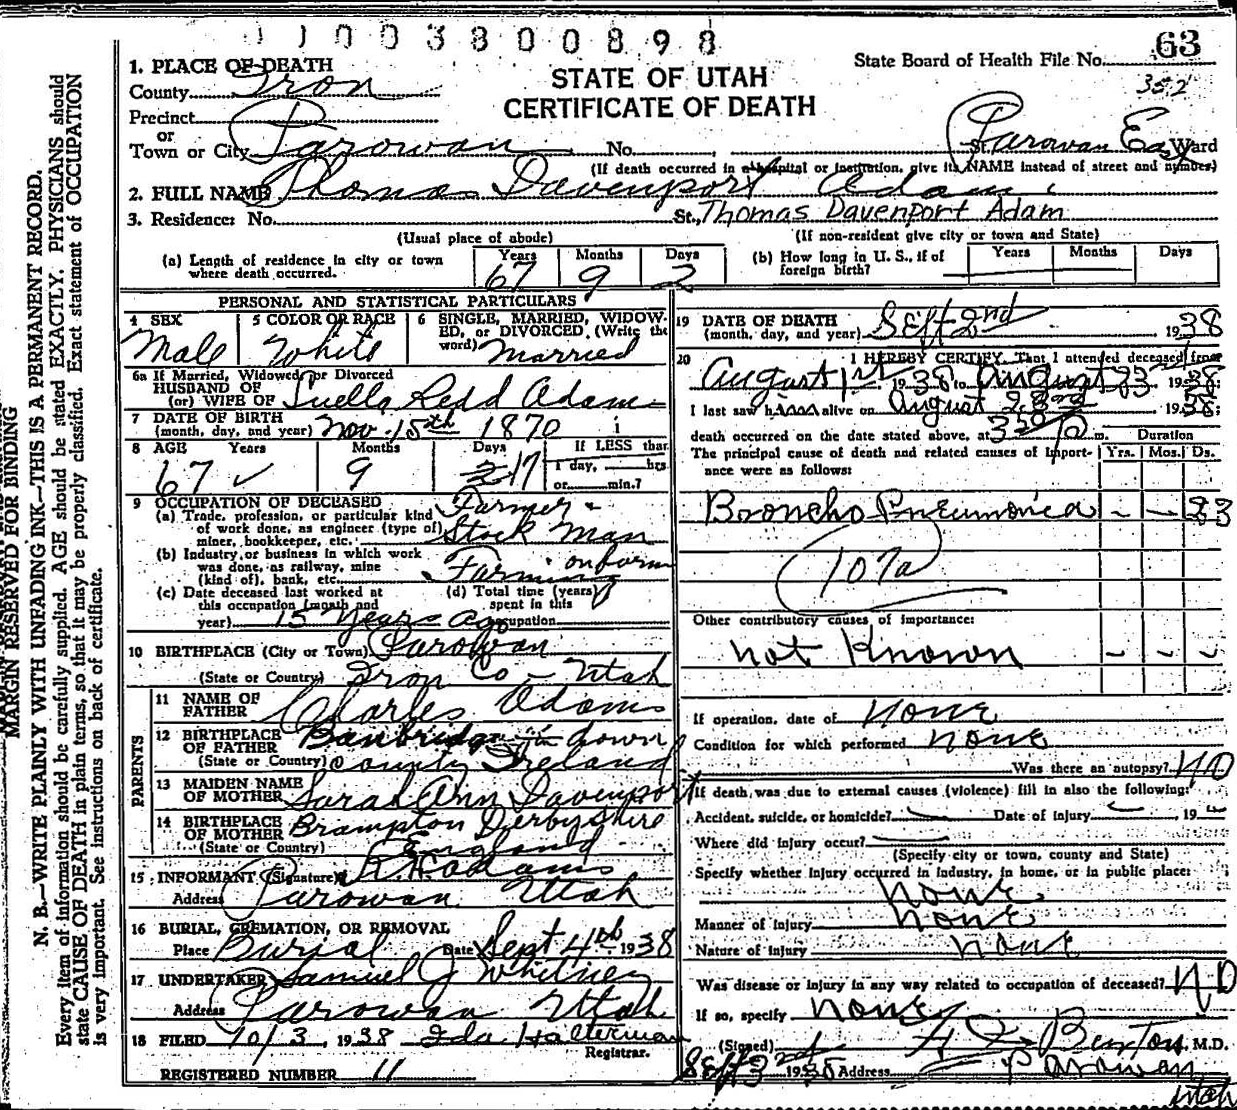 1 1 0 0 3 8 0 0 8 9 8
State Board of Health File No. 63
352
STATE OF UTAH
CERTIFICATE OF DEATH
1. PLACE OF DEATH
County Iron
Precinct
or
Town or City Parowan No. St. Parowan East Ward
(If death occurred in a hospital or institution, give its NAME instead of street and number)
2. FULL NAME Thomas Davenport Adams
3. Residence: No. St., Thomas Davenport Adam
(Usual place of abode) (If non-resident give city or town and State)
(a) Length of residence in city or town where death occurred. Years 67 Months 9 Days 2
(b) How long in U. S., if of foreign birth? Years Months Days
PERSONAL AND STATISTICAL PARTICULARS
4 SEX Male
5 COLOR OR RACE White
6 SINGLE, MARRIED, WIDOWED, or DIVORCED (Write the word) Married
6a If Married, Widowed, or Divorced
HUSBAND OF
(or) WIFE OF Luella Redd Adams
7 DATE OF BIRTH
(month, day, and year) Nov. 15th 1870
8 AGE Years 67 Months 9 Days 17 If LESS than 1 day, hrs. or min.?
9 OCCUPATION OF DECEASED
(a) Trade, profession, or particular kind of work done, as engineer (type of) miner, bookkeeper, etc. Farmer & Stock Man
(b) Industry or business in which work was done, as railway, mine (kind of), bank, etc. Farming on farm
(c) Date deceased last worked at this occupation (month and year) 15 Years ago
(d) Total time (years) spent in this occupation
10 BIRTHPLACE (City or Town) Parowan
(State or Country) Iron Co - Utah
PARENTS
11 NAME OF FATHER Charles Adams
12 BIRTHPLACE OF FATHER Banbridge Down
(State or Country) County Ireland
13 MAIDEN NAME OF MOTHER Sarah Ann Davenport
14 BIRTHPLACE OF MOTHER Brampton Derbyshire
(State or Country) England
15 INFORMANT (Signature) R. H. Adams
Address Parowan Utah
16 BURIAL, CREMATION, OR REMOVAL
Place Burial Date Sept 4th 1938
17 UNDERTAKER Samuel J Whitney
Address Parowan Utah
18 FILED 10/3, 1938 Ida Halterman
Registrar.
REGISTERED NUMBER 11
19 DATE OF DEATH
(month, day, and year) Sept 2nd 1938
20 I HEREBY CERTIFY, That I attended deceased from
August 1st 1938 to August 23 1938
I last saw h alive on August 23rd 1938;
death occurred on the date stated above, at 3 50 P m.
Duration
The principal cause of death and related causes of importance were as follows: Yrs. Mos. Ds.
Broncho Pneumonia - - 23
107a
Other contributory causes of importance:
not Known - - -
If operation, date of none
Condition for which performed none
Was there an autopsy? NO
If death was due to external causes (violence) fill in also the following:
Accident, suicide, or homicide? Date of injury 19
Where did injury occur?
(Specify city or town, county and State)
Specify whether injury occurred in industry, in home, or in public place:
none
Manner of injury none
Nature of injury none
Was disease or injury in any way related to occupation of deceased? NO
If so, specify none
(Signed) Benton M.D.
Sept 3rd 1938 Address Parowan
Utah
MARGIN RESERVED FOR BINDING
N. B.—WRITE PLAINLY WITH UNFADING INK—THIS IS A PERMANENT RECORD.
Every item of information should be carefully supplied. AGE should be stated EXACTLY. PHYSICIANS should
state CAUSE OF DEATH in plain terms, so that it may be properly classified. Exact statement of OCCUPATION
is very important. See instructions on back of certificate.